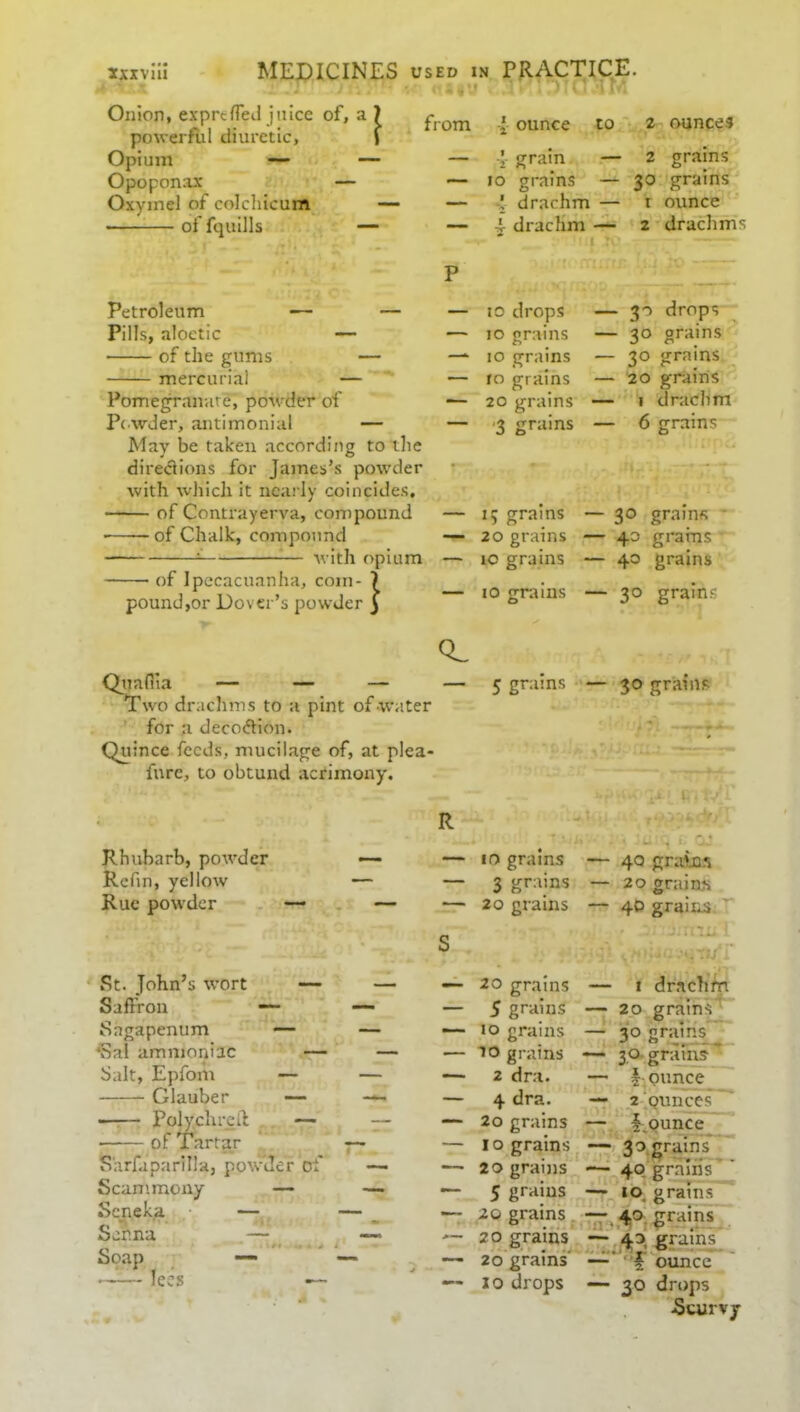 xxxviii MEDICINES USED IN PRACTICE.
Onion, exprefſed juice of, a } from ½ ounce to 2 ounces
powerful diuretic,
Opium — — — ½ grain — 2 grains
Opoponax — — 10 grains — 30 grains
Oxymel of colchicum — — ½ drachm — 1 ounce
——— of ſquills — — ½ drachm — 2 drachms
P
Petroleum — — — 10 drops — 30 drops
Pills, aloetic — — 10 grains — 30 grains
—— of the gums — — 10 grains — 30 grains
—— mercurial — — 10 grains — 20 grains
Pomegranate, powder of — 20 grains — 1 drachm
Powder, antimonial — — 3 grains — 6 grains
May be taken according to the
directions for James's powder
with which it nearly coincides.
—— of Contrayerva, compound — 15 grains — 30 grains
—— of Chalk, compound — 20 grains — 40 grains
—————— with opium — 10 grains — 40 grains
—— of Ipecacuanha, com- } — 10 grains — 30 grains
pound, or Dover's powder
Q
Quaſſia — — — — 5 grains — 30 grains
Two drachms to a pint of water
for a decoction.
Quince ſeeds, mucilage of, at plea-
ſure, to obtund acrimony.
R
Rhubarb, powder — — 10 grains — 40 grains
Reſin, yellow — — 3 grains — 20 grains
Rue powder — — — 20 grains — 40 grains
S
St. John's wort — — — 20 grains — 1 drachm
Saffron — — — 5 grains — 20 grains
Sagapenum — — — 10 grains — 30 grains
Sal ammoniac — — — 10 grains — 30 grains
Salt, Epſom — — — 2 dra. — ½ ounce
—— Glauber — — — 4 dra. — 2 ounces
—— Polychreſt — — — 20 grains — ½ ounce
—— of Tartar — — 10 grains — 30 grains
Sarſaparilla, powder of — — 20 grains — 40 grains
Scammony — — — 5 grains — 10 grains
Seneka — — — 20 grains — 40 grains
Senna — — — 20 grains — 40 grains
Soap — — — 20 grains — ½ ounce
—— lees — — 10 drops — 30 drops
Scurvy